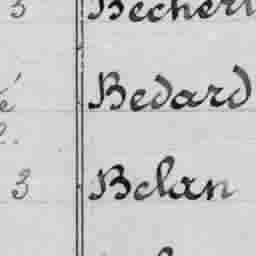 5 Becherl
é Bedard
3 Belan